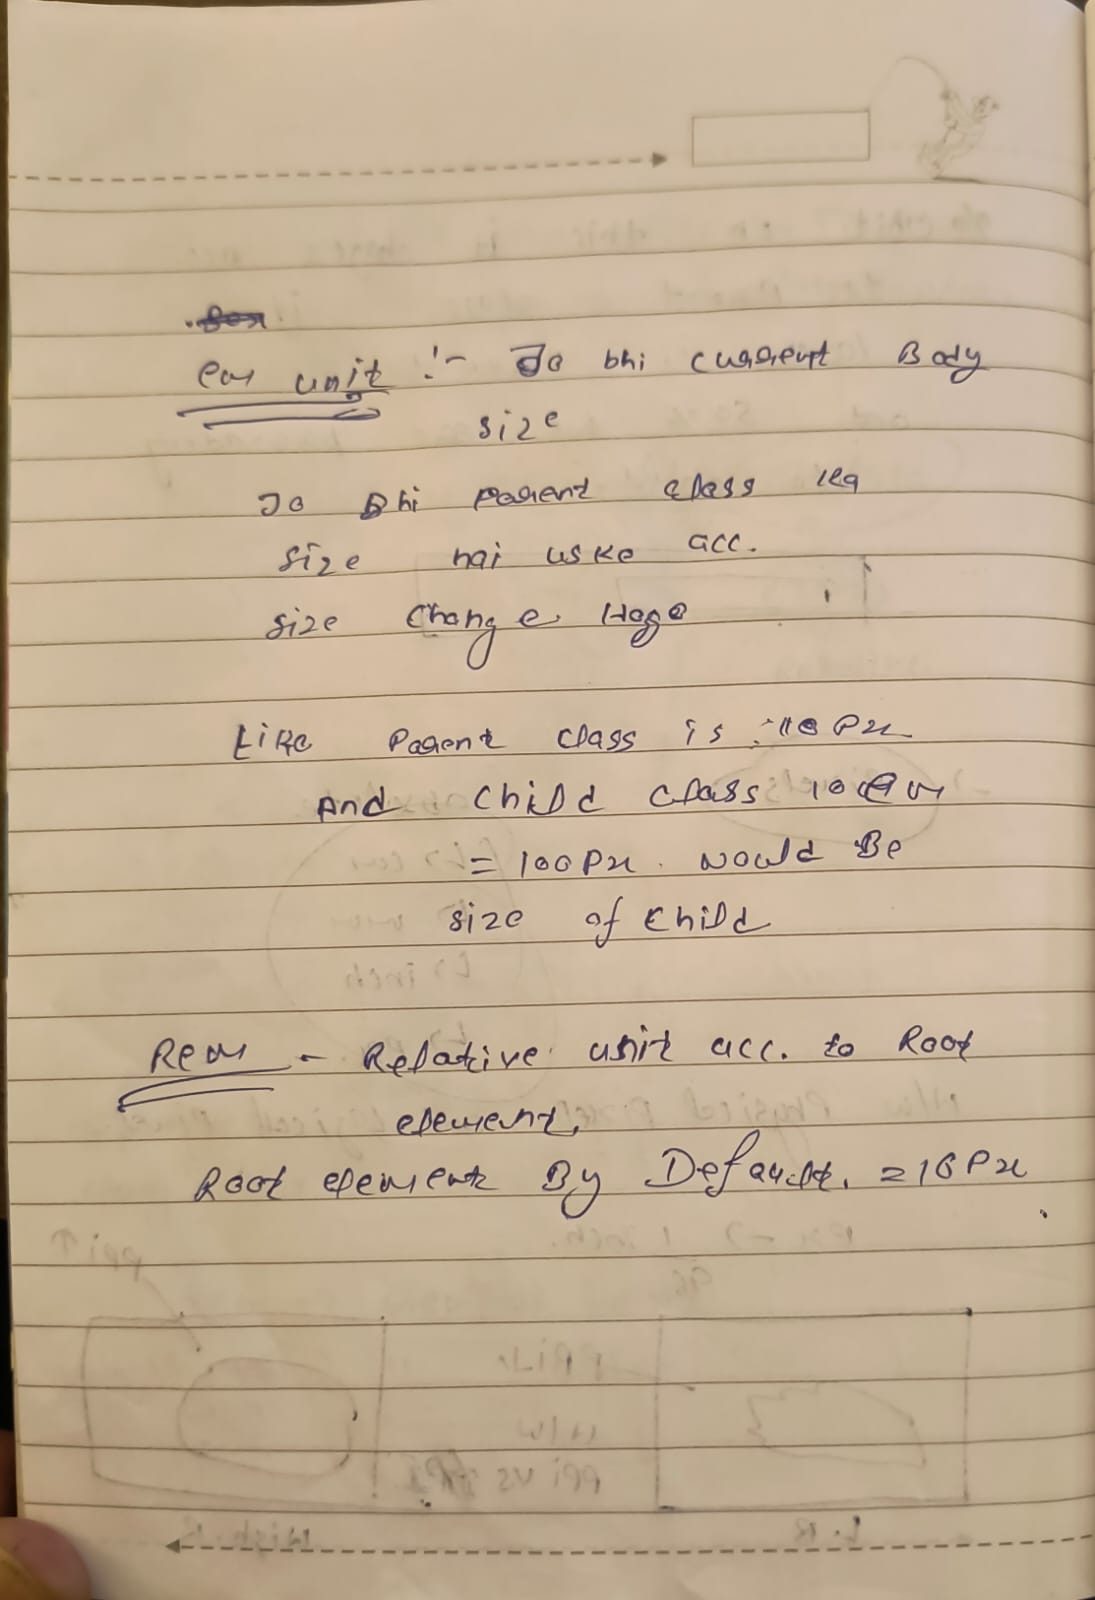 em unit :- Jo bhi current Body
size
Jo Bhi Parent class ka
size hai uske acc.
size Change Hoga
Like Parent class is 10 Px
And Child class 10 em
= 100 Px. would Be
size of Child
Rem - Relative unit acc. to Root
element,
Root element By Default. = 16 Px